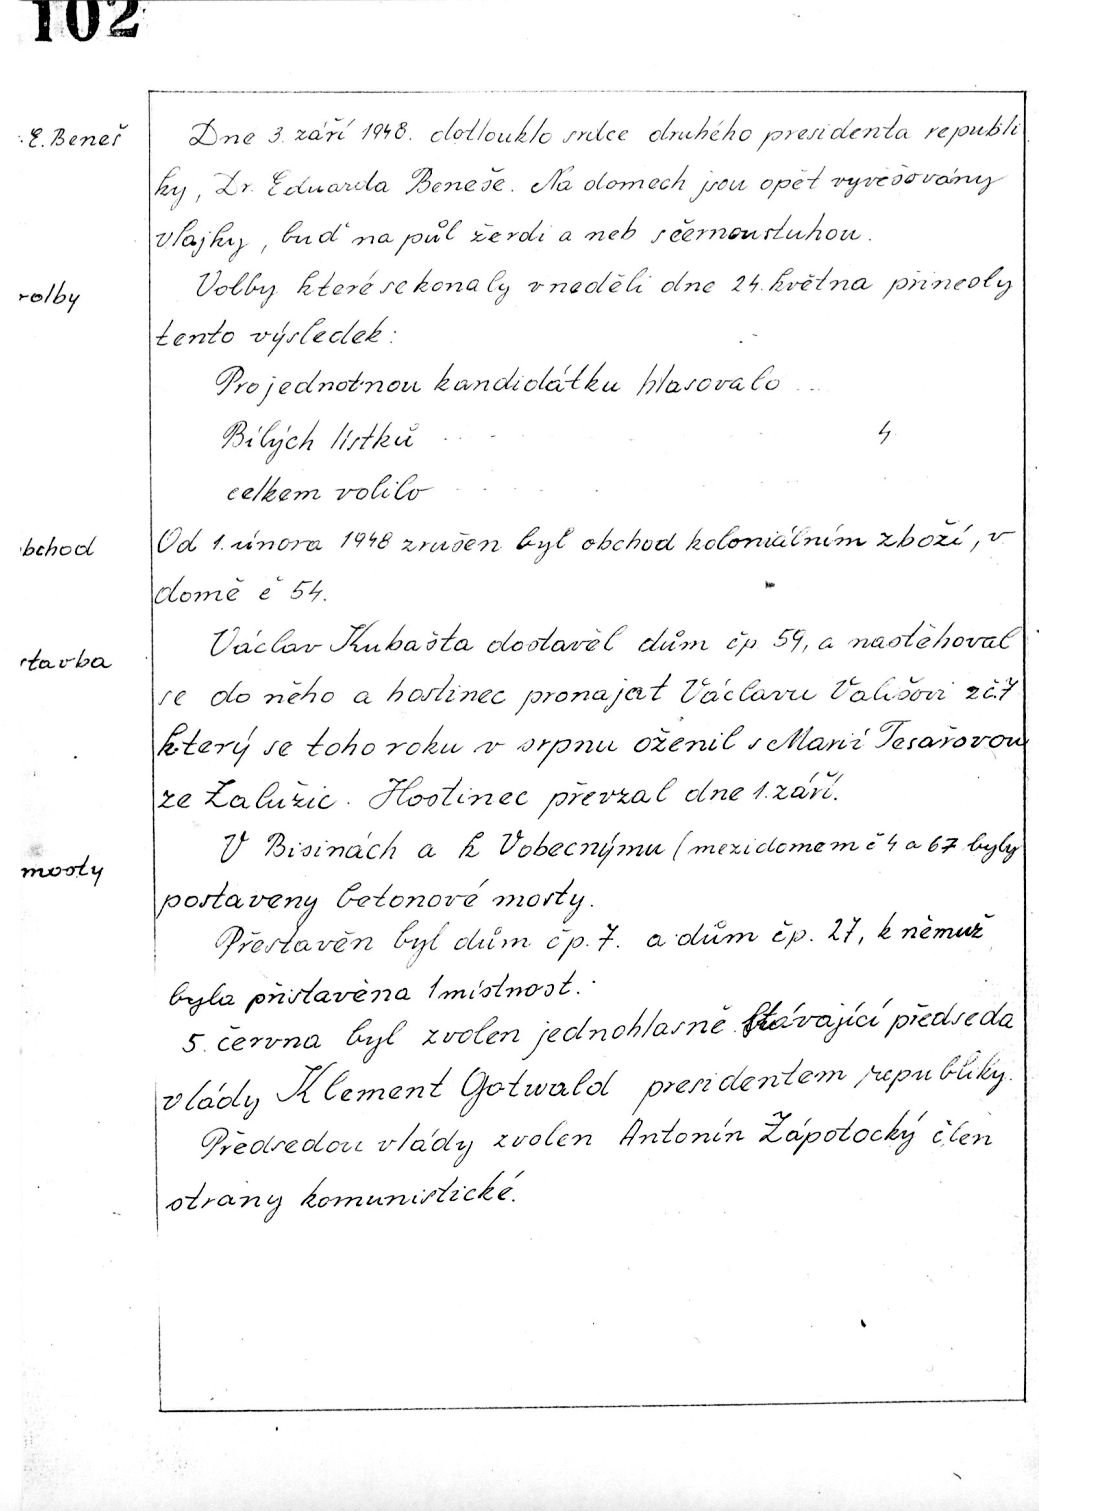 102
E. Beneš
Dne 3. září 1948. dotlouklo srdce druhého presidenta republi
ky, Dr. Eduarda Beneše. Na domech jsou opět vyvěšovány
vlajky, buď na půl žerdi a neb sčernoustuhou.
volby
Volby které se konaly vneděli dne 24. května přinesly
tento výsledek:
Pro jednotnou kandidátku hlasovalo ..
Bílých lístků 4
celkem volilo
bchod
Od 1. února 1948 zrušen byl obchod koloniálním zboží, v
domě č 54.
stavba
Václav Kubašta dostavěl dům čp. 59, a nastěhoval
se do něho a hostinec pronajat Václavu Vališovi z č.7
který se toho roku v srpnu oženil s Marií Tesařovou
ze Zalužic. Hostinec převzal dne 1. září.
mosty
V Bisinách a k Vobecnýmu (mezi domem č 4 a 67 byly
postaveny betonové mosty.
Přestavěn byl dům čp. 7. a dům čp. 27, k němuž
byla přistavěna 1 místnost.
5. června byl zvolen jednohlasně stávající předseda
vlády Klement Gotwald presidentem republiky.
Předsedou vlády zvolen Antonín Zápotocký člen
strany komunistické.